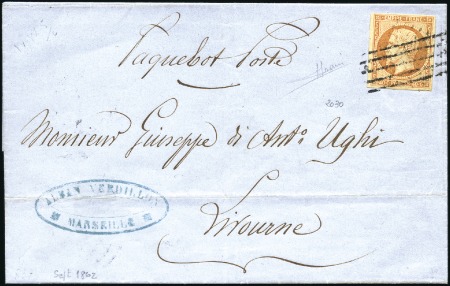 EMPIRE FRANC
Paquebot Poste
2030
Monsieur Giuseppe di Ant.º Ughi
Livourne
ALBIN VERDILLON
MARSEILLE
Sept 1862